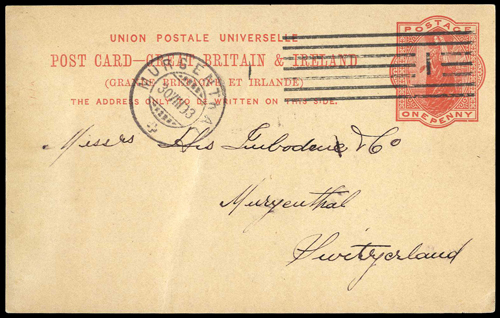 UNION POSTALE UNIVERSELLE
POST CARD—GREAT BRITAIN & IRELAND
(GRANDE BRETAGNE ET IRLANDE)
THE ADDRESS ONLY TO BE WRITTEN ON THIS SIDE.
POSTAGE
ONE PENNY
MURGENTHAL
Messrs & Co
Murgenthal
Switzerland